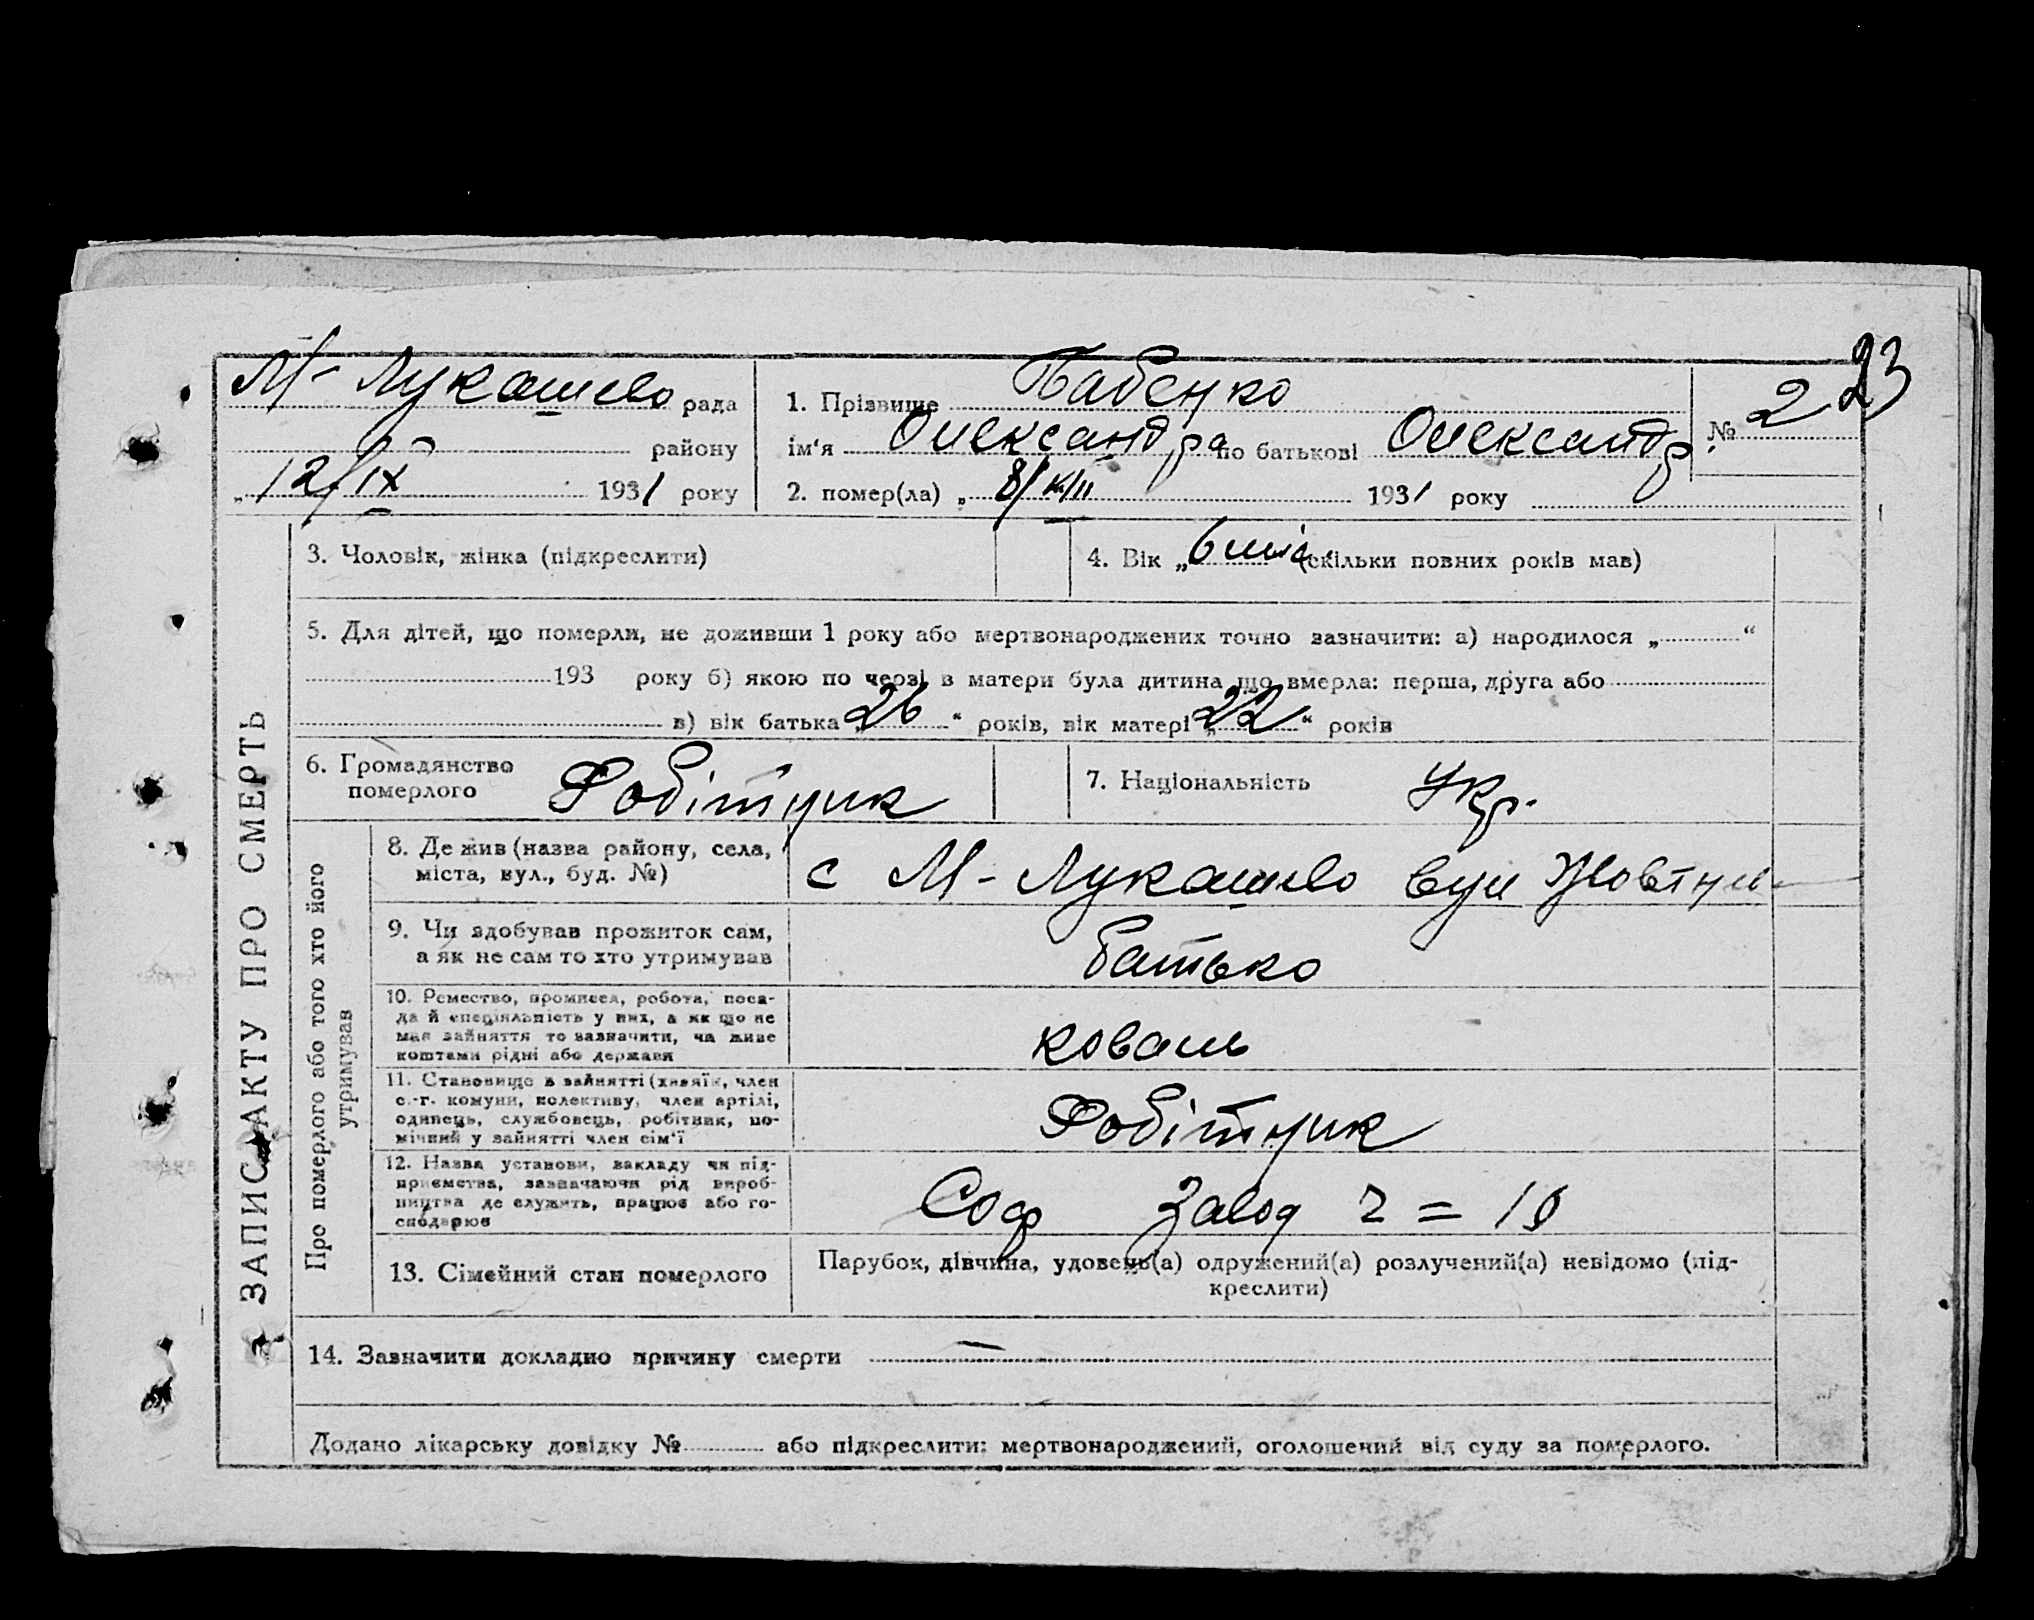 23
М-Лукашево рада
району
„12/IX 1931 року
1. Прізвище Бабенко
ім'я Олександра по батькові Олександр.
№ 2
2. помер(ла) „8/ 1931 року
ЗАПИС АКТУ ПРО СМЕРТЬ
3. Чоловік, жінка (підкреслити)
4. Вік „6 (скільки повних років мав)
5. Для дітей, що померли, не доживши 1 року або мертвонароджених точно зазначити: а) народилося „ “
193 року б) якою по черзі в матери була дитина що вмерла: перша, друга або
в) вік батька „26“ років, вік матері „22“ років
6. Громадянство
померлого Робітник
7. Національність Укр.
Про померлого або того хто його
утримував
8. Де жив (назва району, села,
міста, вул., буд. №)
с М-Лукашево вул Жовтнев
9. Чи здобував прожиток сам,
а як не сам то хто утримував
батько
10. Ремество, промисел, робота, поса-
да й спеціяльність у них, а як що не
мав зайняття то зазначити, чи живе
коштами рідні або держави
коваль
11. Становище в зайнятті (хазяїн, член
с.-г. комуни, колективу, член артілі,
одинець, службовець, робітник, по-
мічний у зайнятті член сім'ї
Робітник
12. Назва установи, закладу чи під-
приємства, зазначаючи рід вироб-
ництва де служить, працює або го-
сподарює
Соф завод 2 = 10
13. Сімейний стан померлого
Парубок, дівчина, удовець(а) одружений(а) розлучений(а) невідомо (під-
креслити)
14. Зазначити докладно причину смерти —
Додано лікарську довідку № або підкреслити: мертвонароджений, оголошений від суду за померлого.